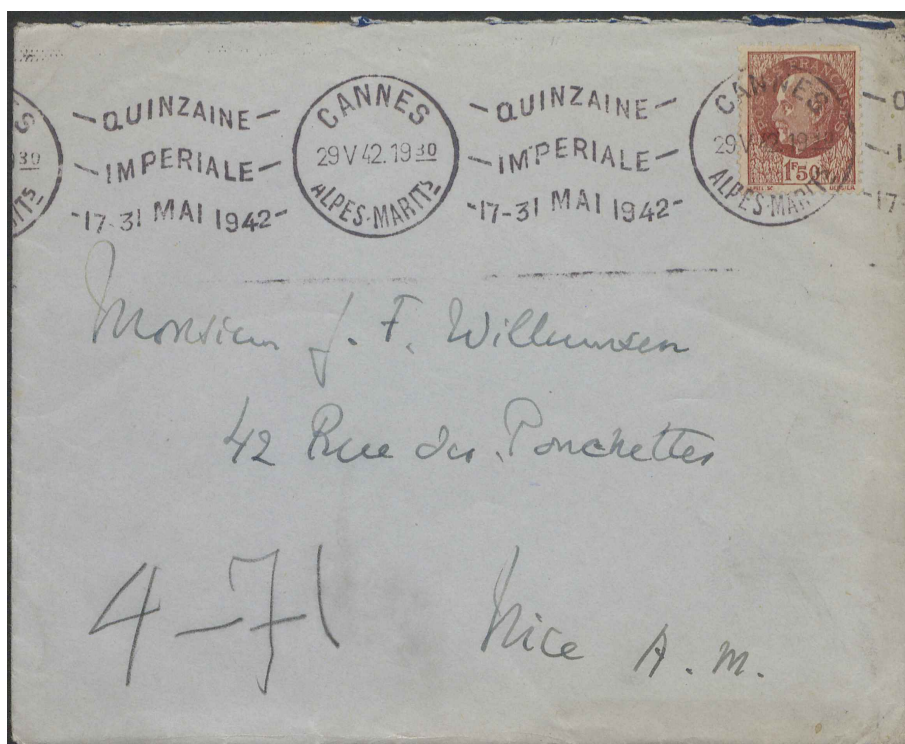 QUINZAINE
IMPERIALE
17-31 MAI 1942
CANNES
29 V 42. 19 30
ALPES-MARITS
QUINZAINE
IMPERIALE
17-31 MAI 1942
CANNES
29 V
ALPES-MARITS
1F50
Monsieur J. F. Willumsen
42 Rue des Ponchettes
4-71
Nice A.M.